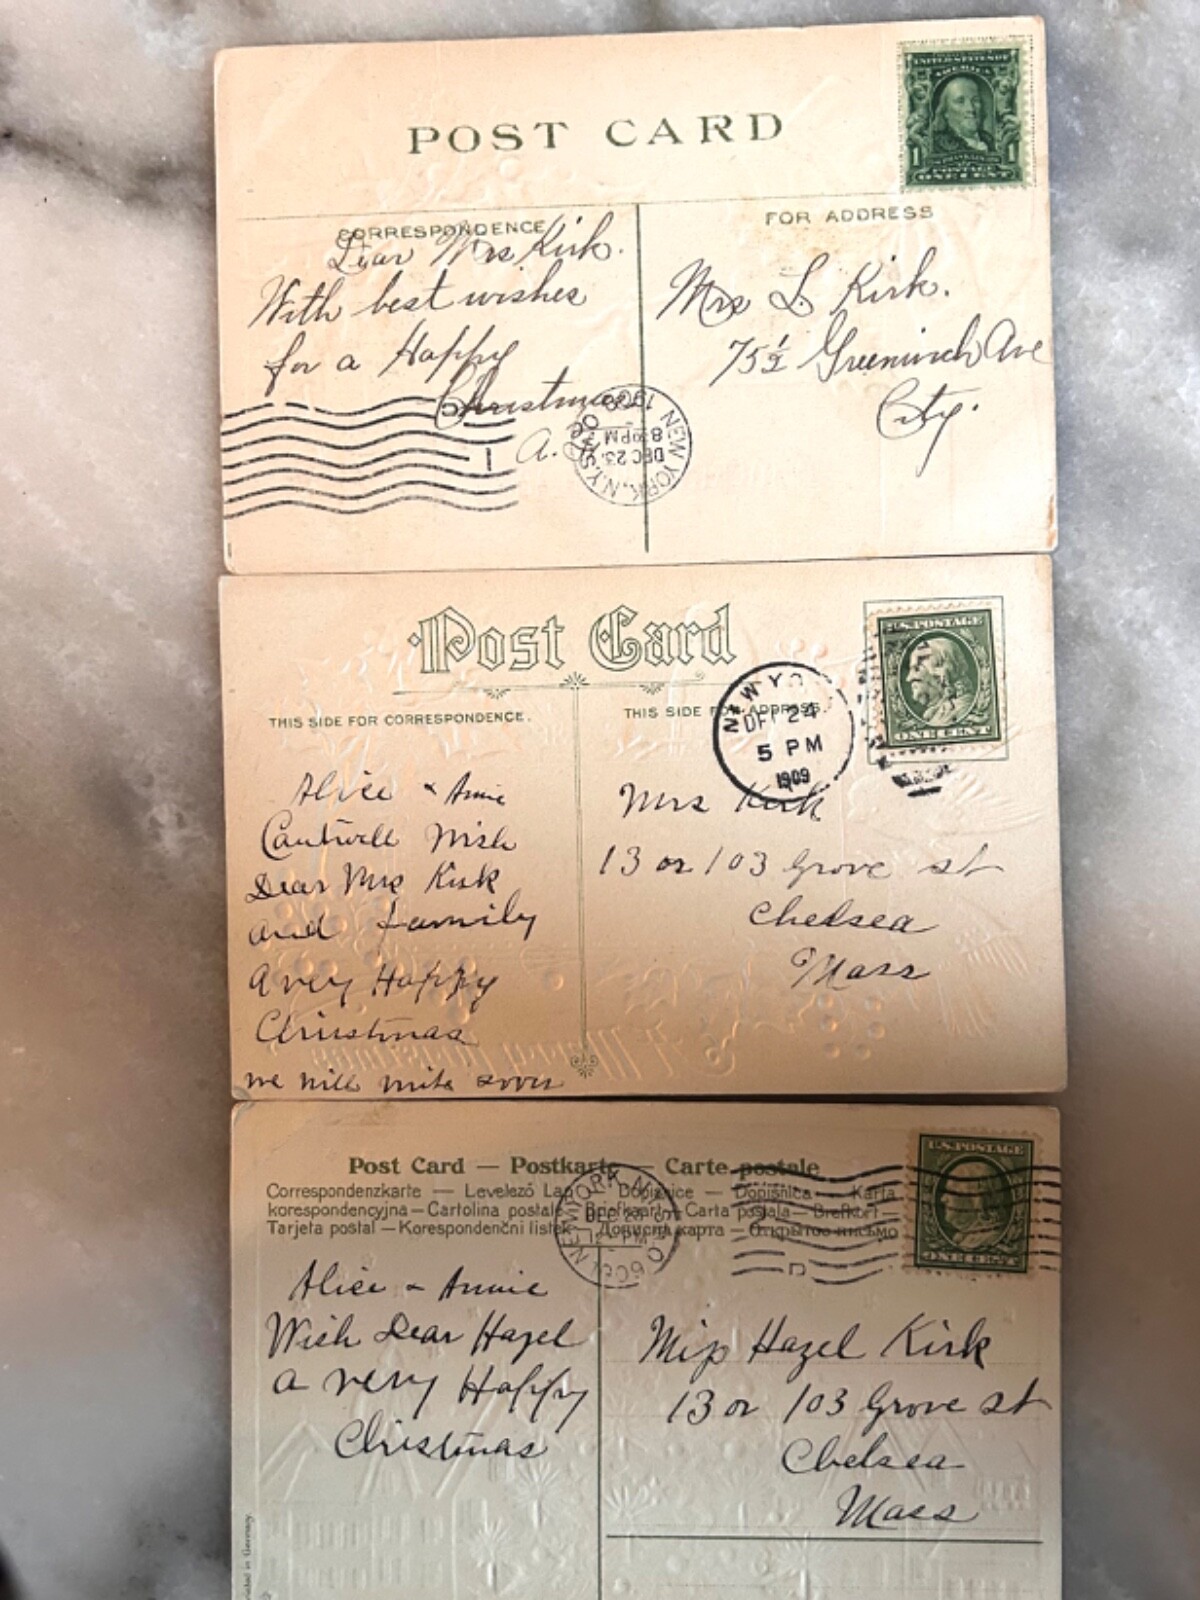 POST CARD
UNITED STATES OF
AMERICA
1 1
FRANKLIN
POSTAGE
ONE CENT
CORRESPONDENCE
FOR ADDRESS
Dear Mrs Kirk.
With best wishes
for a Happy
Christmas
A.
Mrs L Kirk.
75½ Greenwich Ave
City.
NEW YORK, N.Y.
DEC 23
PM
1908
Post Card
U.S. POSTAGE
ONE CENT
THIS SIDE FOR CORRESPONDENCE.
THIS SIDE FOR ADDRESS.
NEW YO
DEC 24
5 PM
1909
Alice & Annie
Cantwell Wish
Dear Mrs Kirk
and family
a very Happy
Christmas
we will write soon
Mrs Kirk
13 or 103 Grove st
Chelsea
Mass
Post Card — Postkarte — Carte postale
Correspondenzkarte — Levelező Lap — Dopisnice — Dopisnica — Karta
korespondencyjna — Cartolina postale — Briefkaart — Carta postala — Brefkort —
Tarjeta postal — Korespondenční lístek — Дописна карта — Открытое письмо
U.S. POSTAGE
ONE CENT
NEW YORK, N.
DEC
PM
Alice & Annie
Wish Dear Hazel
a very Happy
Christmas
Miss Hazel Kirk
13 or 103 Grove st
Chelsea
Mass
in Germany